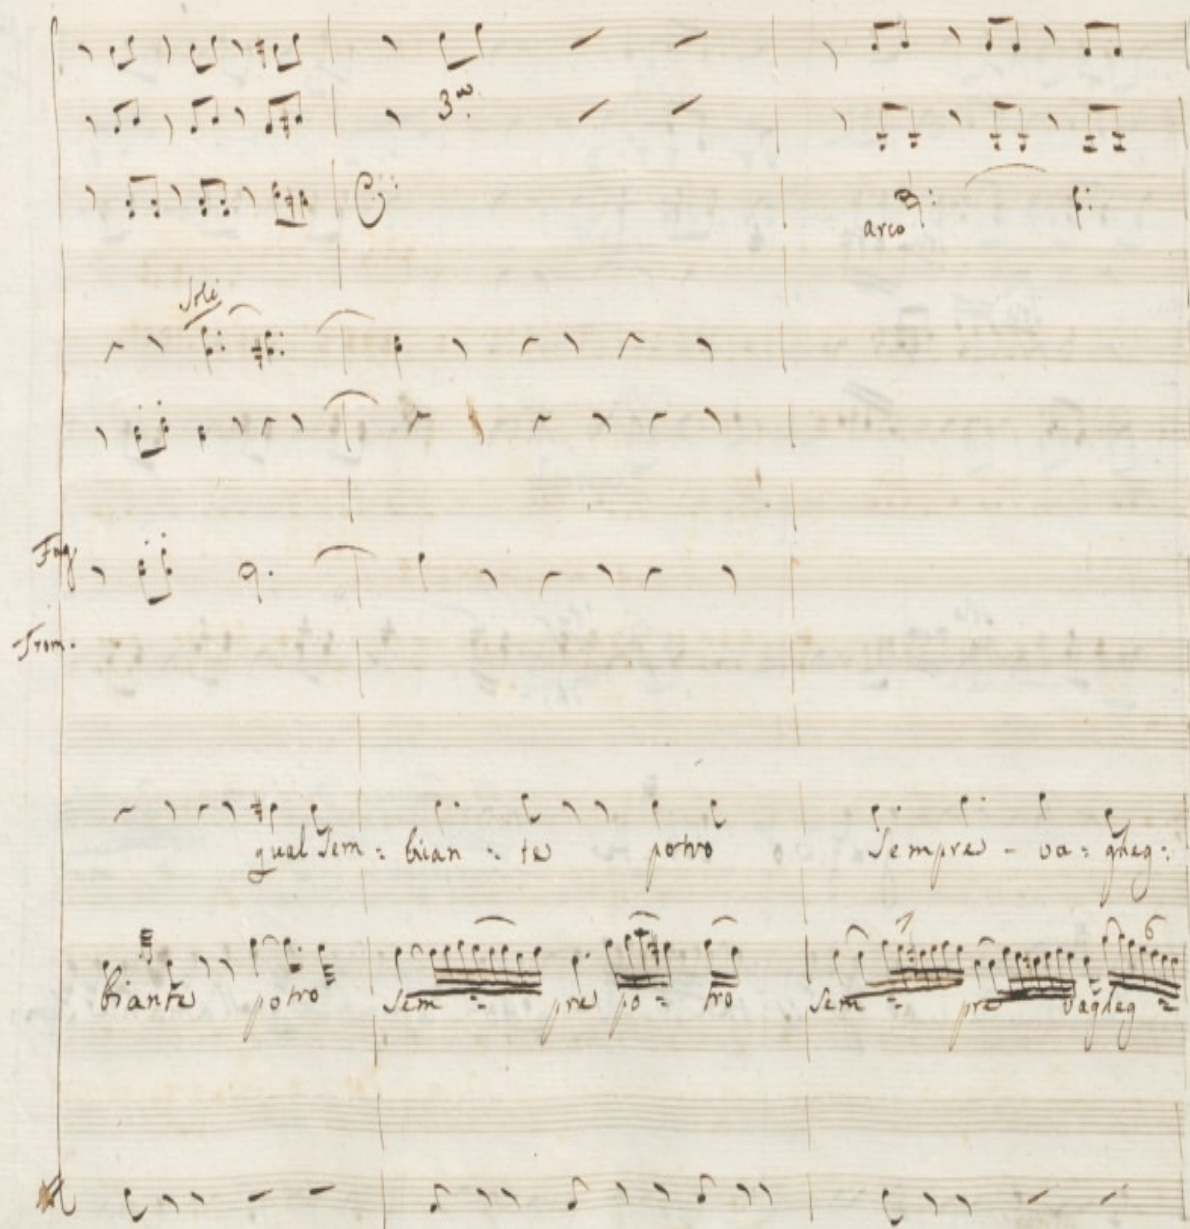 3ª
arco
Soli
Fag
Trom.
qual Sem = bian = te potro Sempre - va = gheg =
biante potro Sem = pre po = tro Sem = pre vagheg =
7
6